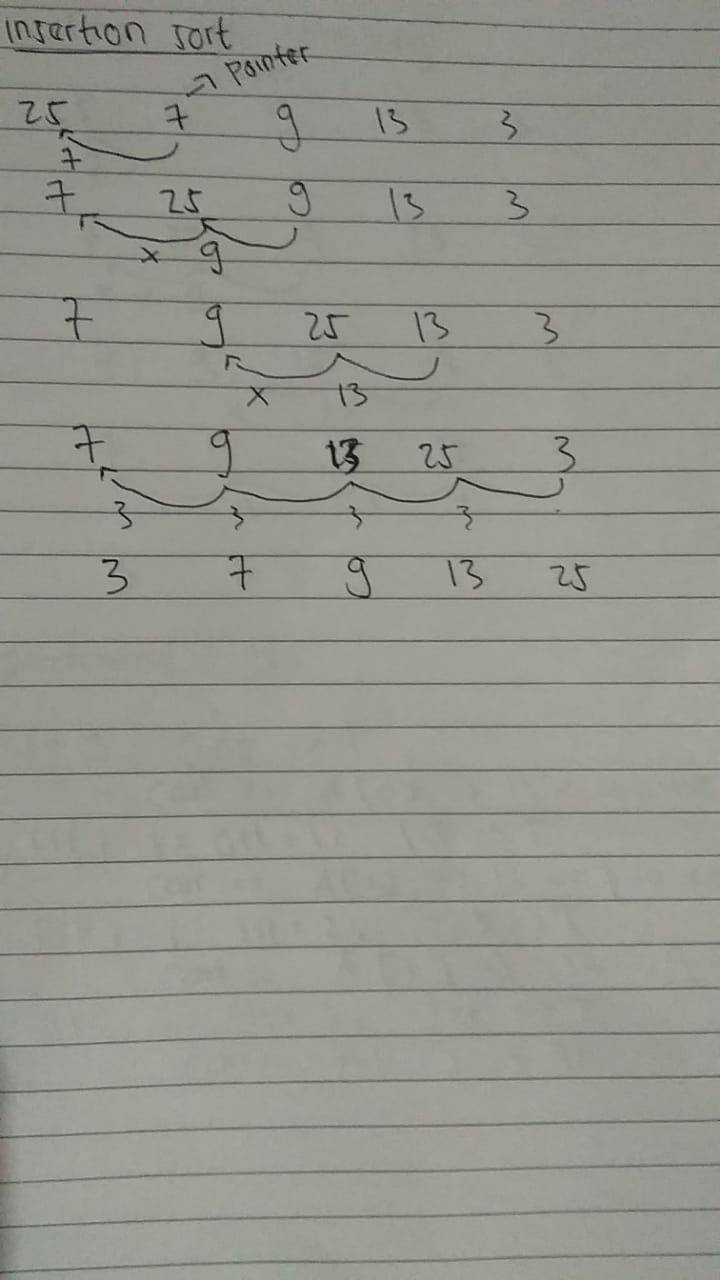 insertion sort
→ pointer
25 7 9 13 3
7
7 25 9 13 3
x 9
7 9 25 13 3
x 13
7 9 13 25 3
3 3 3 3
3 7 9 13 25